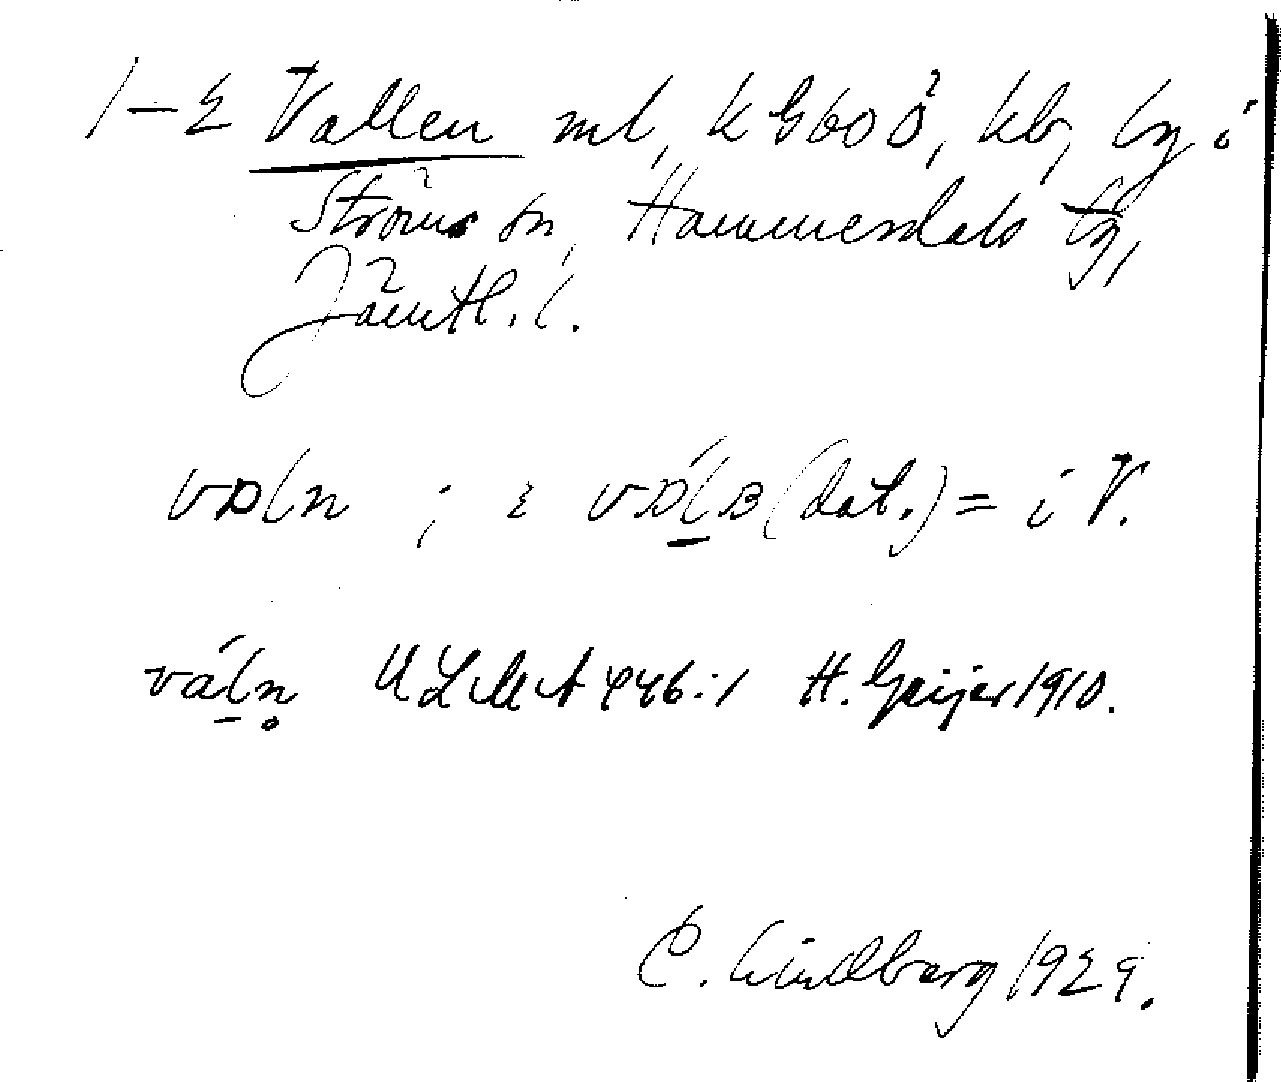 1–2 Vallen ml, k G600Ö, kb, by i
Ströms sn, Hammerdals tg,
Jämtl. l.
(dat.) = i V.
váln ULMA 446:1 H. Geijer 1910.
C. Lindberg 1929.